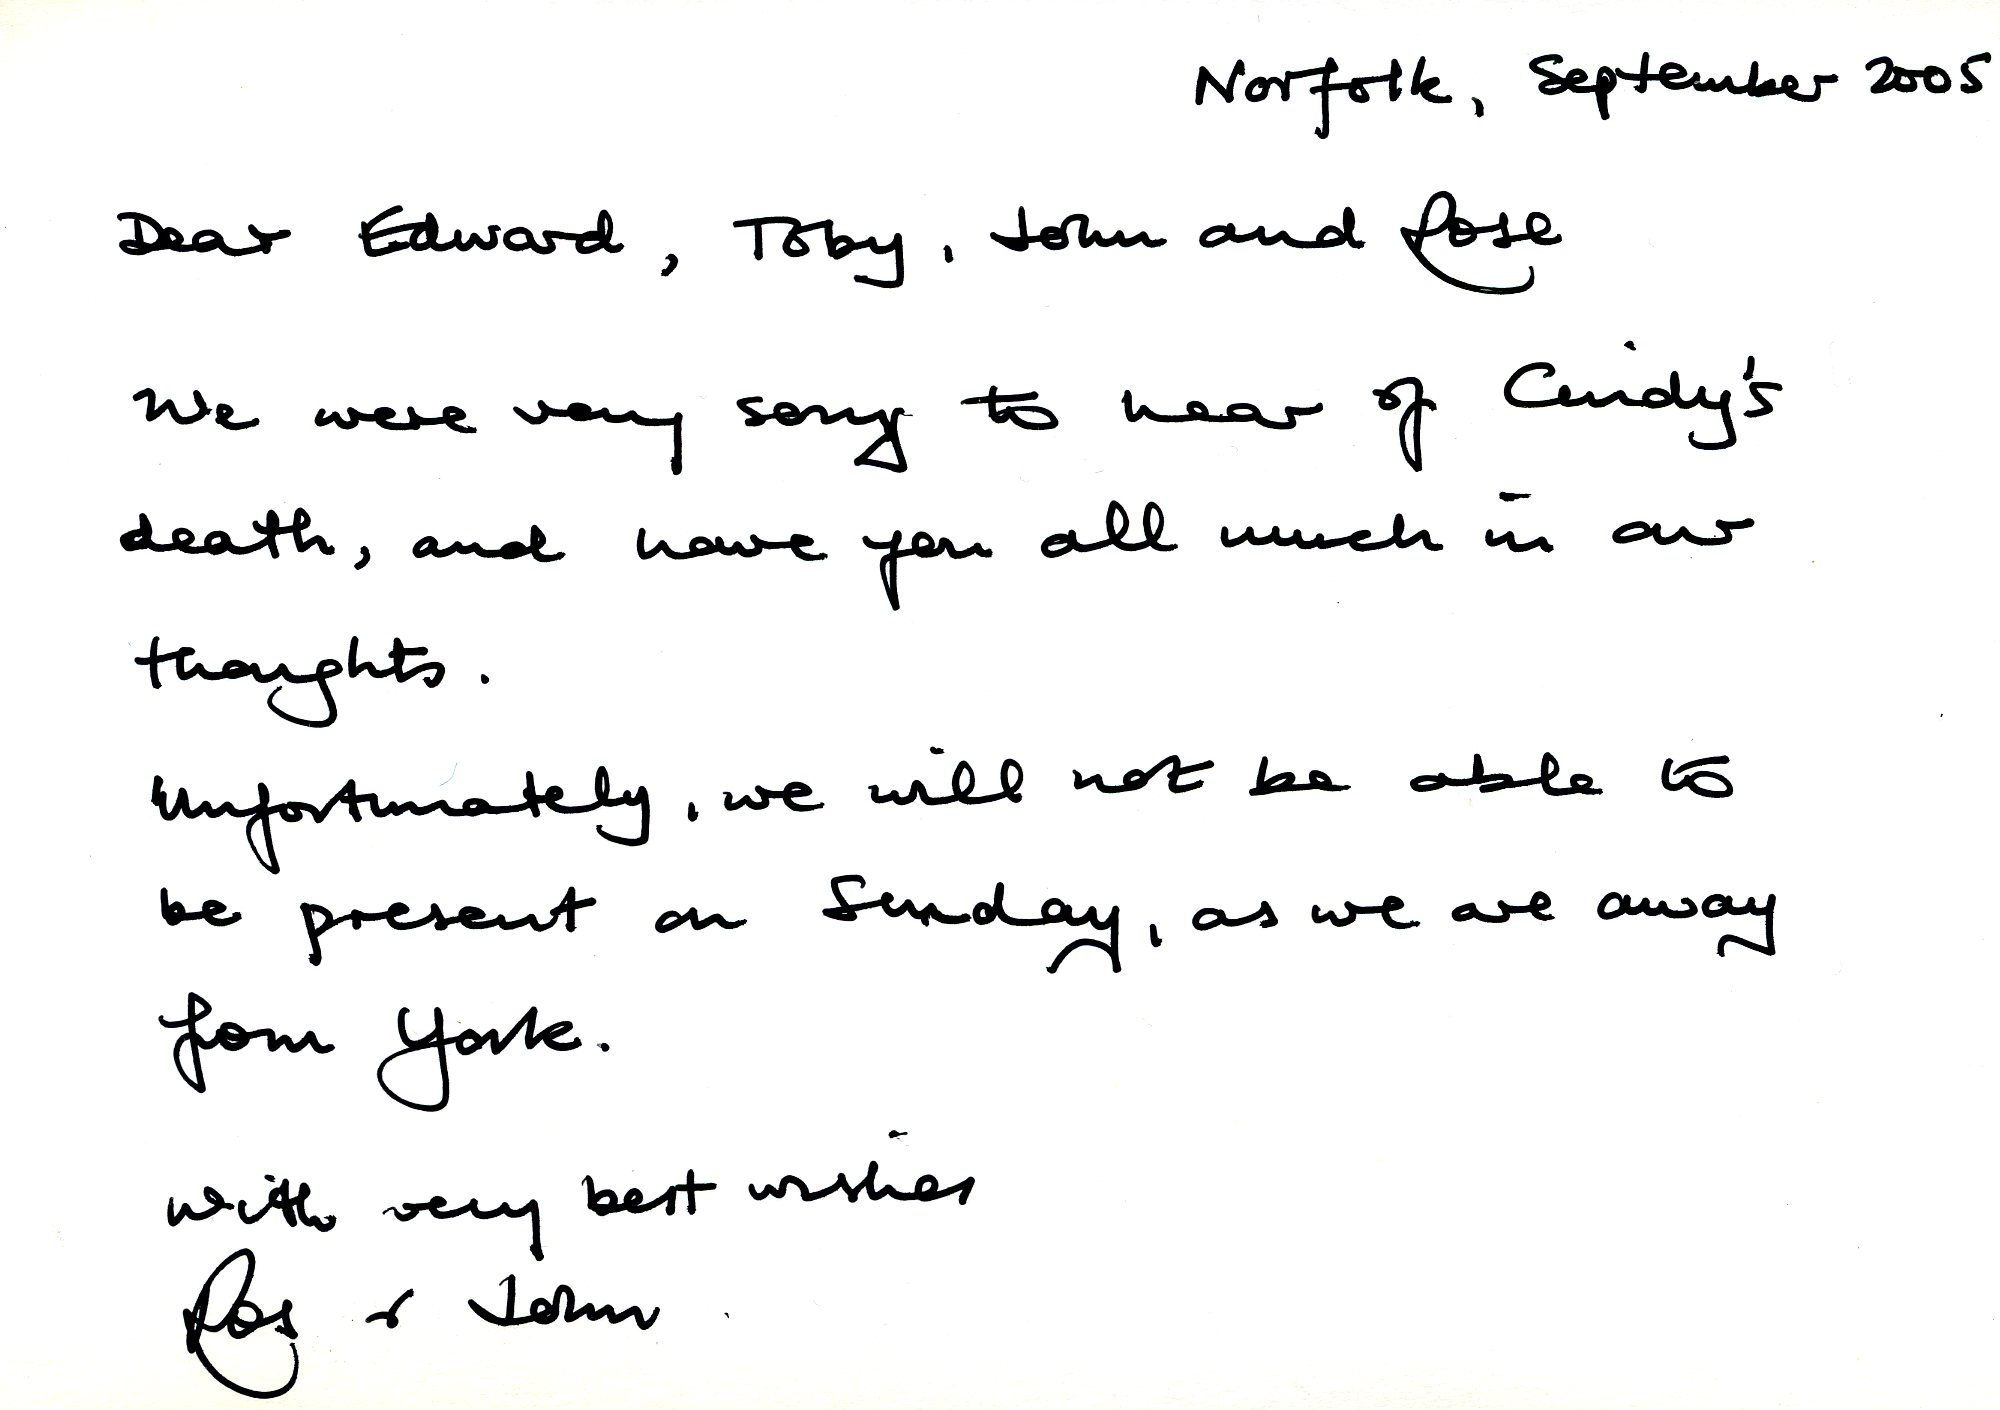 Norfolk, September 2005
Dear Edward, Toby, John and Rose
We were very sorry to hear of Cindy's
death, and have you all much in our
thoughts.
Unfortunately, we will not be able to
be present on Sunday, as we are away
from York.
With very best wishes
Ros & John